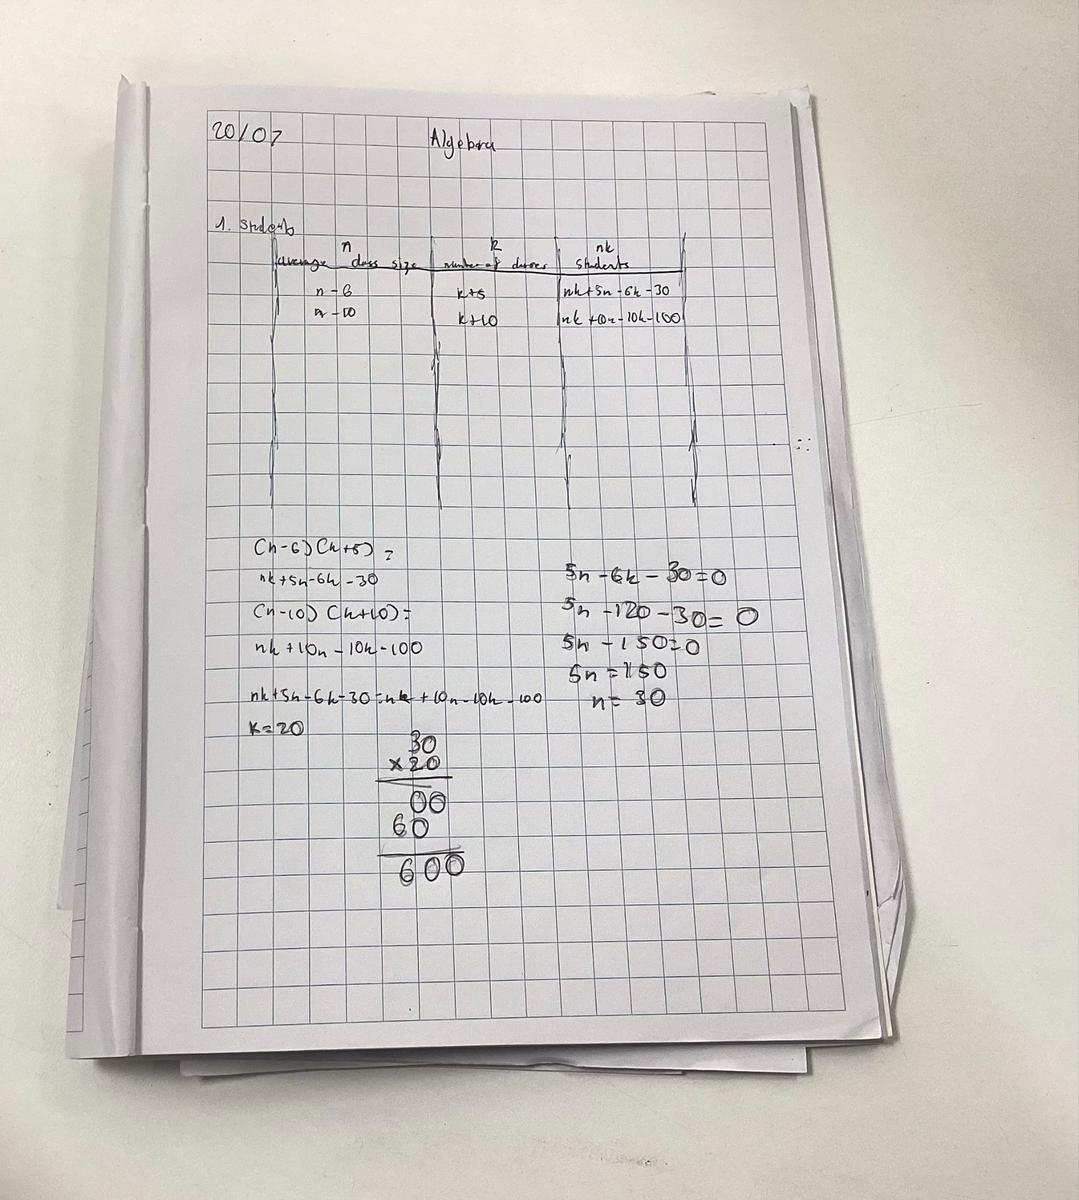 20/07
Algebra
1. Students
n k nk
average class size number of classes students
n-6 k+5 nk+5n-6k-30
n-10 k+10 nk+10n-10k-100
(n-6)(k+5)=
nk+5n-6k-30
(n-10)(k+10)=
nk+10n-10k-100
nk+5n-6k-30=nk+10n-10k-100
k=20
30
×20
00
60
600
5n-6k-30=0
5n-120-30=0
5n-150=0
5n=150
n=30